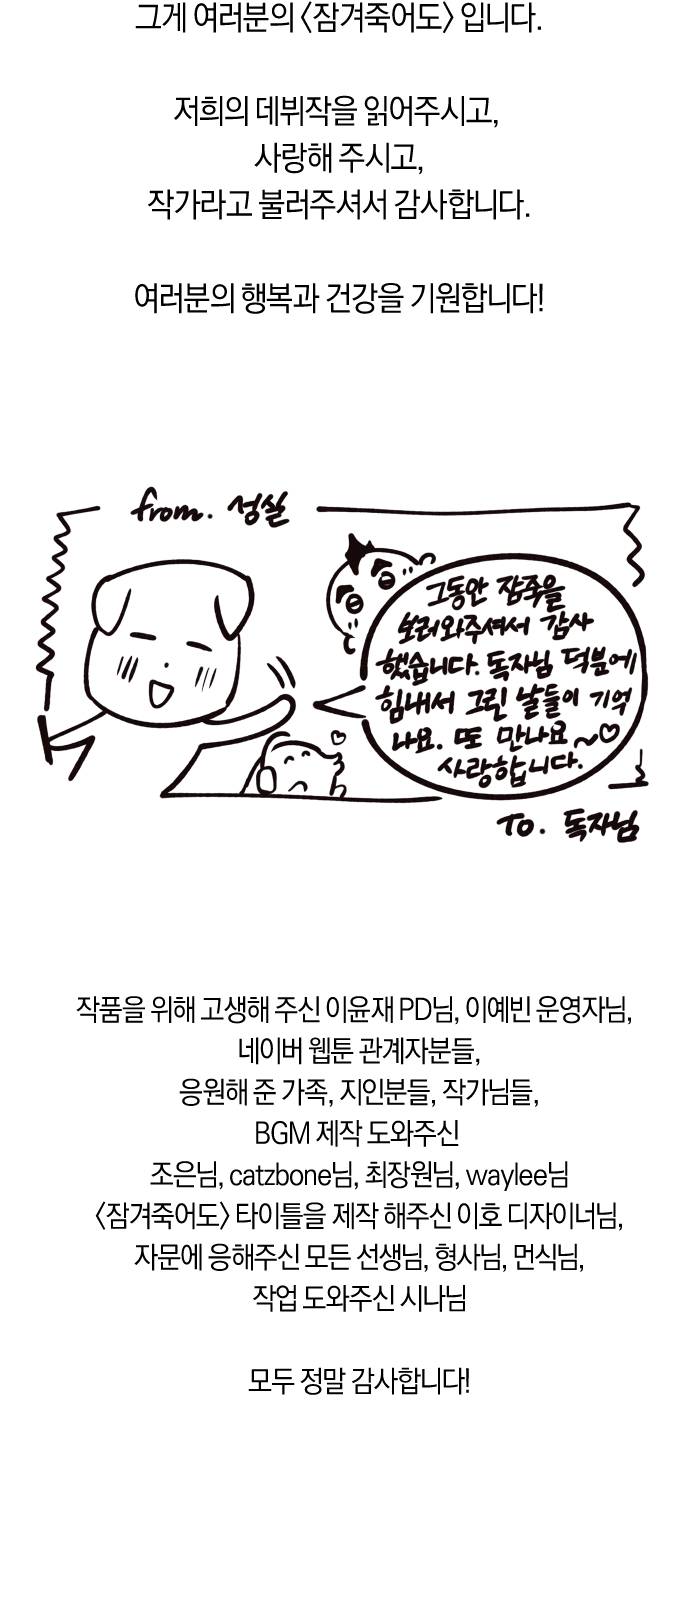 그게 여러분의 〈잠겨죽어도〉 입니다.
저희의 데뷔작을 읽어주시고,
사랑해 주시고,
작가라고 불러주셔서 감사합니다.
여러분의 행복과 건강을 기원합니다!
from. 성실
그동안 잠죽을
보러와주셔서 감사
했습니다. 독자님 덕분에
힘내서 그린 날들이 기억
나요. 또 만나요~♡
사랑합니다.
To. 독자님
작품을 위해 고생해 주신 이윤재 PD님, 이예빈 운영자님,
네이버 웹툰 관계자분들,
응원해 준 가족, 지인분들, 작가님들,
BGM 제작 도와주신
조은님, catzbone님, 최장원님, waylee님
〈잠겨죽어도〉 타이틀을 제작 해주신 이호 디자이너님,
자문에 응해주신 모든 선생님, 형사님, 먼식님,
작업 도와주신 시나님
모두 정말 감사합니다!